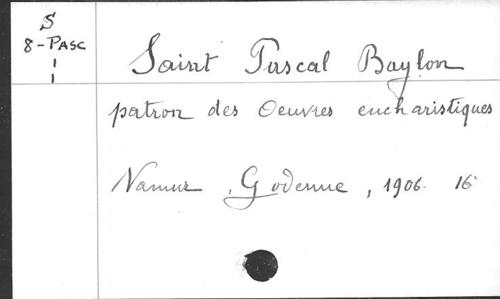 S
8-PASC
Saint Pascal Baylon
patron des Oeuvres eucharistiques
Namur, Godenne, 1906. 16°